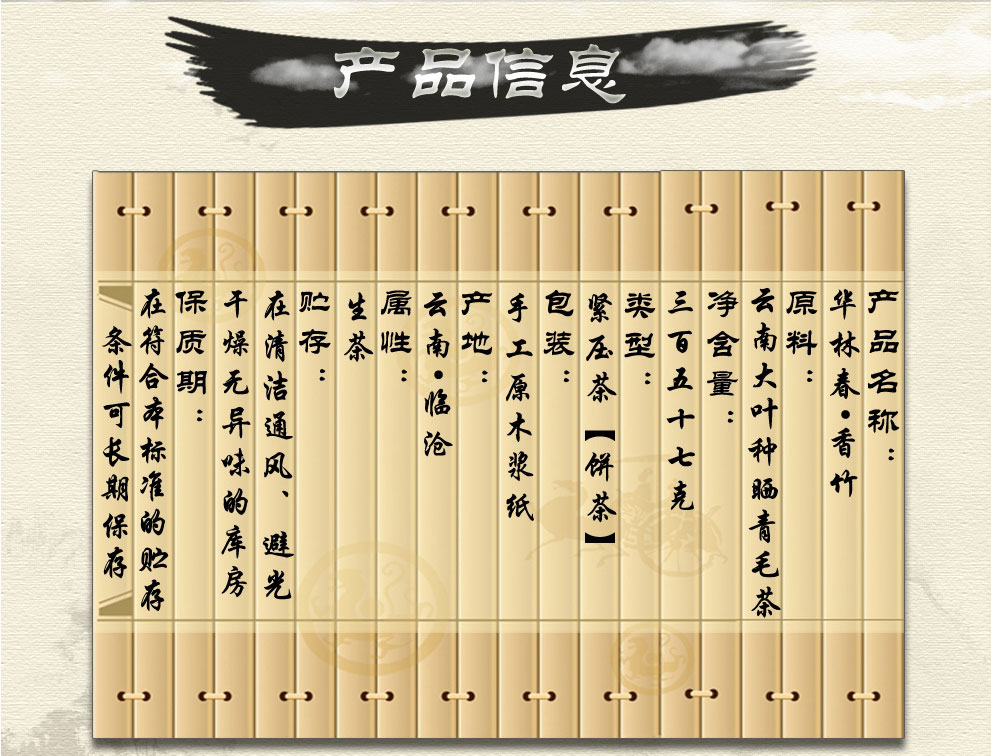 产品信息
产品名称：
华林春·香竹
原料：
云南大叶种晒青毛茶
净含量：
三百五十七克
类型：
紧压茶【饼茶】
包装：
手工原木浆纸
产地：
云南·临沧
属性：
生茶
贮存：
在清洁通风、避光
干燥无异味的库房
保质期：
在符合本标准的贮存
条件可长期保存